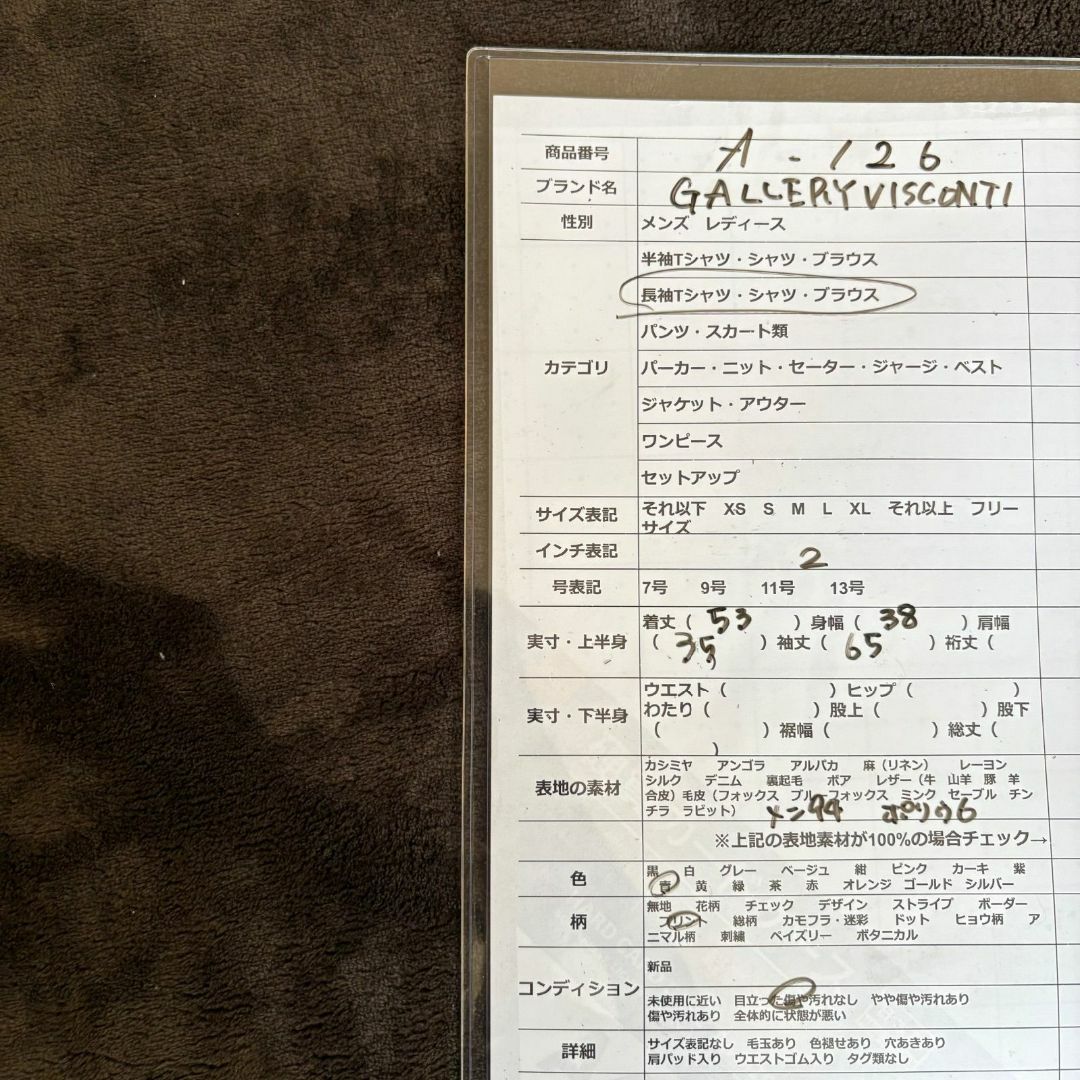 商品番号 A - 126
ブランド名 GALLERYVISCONTI
性別 メンズ レディース
カテゴリ
半袖Tシャツ・シャツ・ブラウス
長袖Tシャツ・シャツ・ブラウス
パンツ・スカート類
パーカー・ニット・セーター・ジャージ・ベスト
ジャケット・アウター
ワンピース
セットアップ
サイズ表記 それ以下 XS S M L XL それ以上 フリー
サイズ
インチ表記 2
号表記 7号 9号 11号 13号
実寸・上半身
着丈（ 53 ）身幅（ 38 ）肩幅
（ 35 ）袖丈（ 65 ）裄丈（
実寸・下半身
ウエスト（ ）ヒップ（ ）
わたり（ ）股上（ ）股下
（ ）裾幅（ ）総丈（
）
表地の素材
カシミヤ アンゴラ アルパカ 麻（リネン） レーヨン
シルク デニム 裏起毛 ボア レザー（牛 山羊 豚 羊
合皮）毛皮（フォックス ブルーフォックス ミンク セーブル チン
チラ ラビット） メン94 ポリウ6
※上記の表地素材が100%の場合チェック→
色
黒 白 グレー ベージュ 紺 ピンク カーキ 紫
青 黄 緑 茶 赤 オレンジ ゴールド シルバー
柄
無地 花柄 チェック デザイン ストライプ ボーダー
プリント 総柄 カモフラ・迷彩 ドット ヒョウ柄 ア
ニマル柄 刺繍 ペイズリー ボタニカル
コンディション
新品
未使用に近い 目立った傷や汚れなし やや傷や汚れあり
傷や汚れあり 全体的に状態が悪い
詳細
サイズ表記なし 毛玉あり 色褪せあり 穴あきあり
肩パッド入り ウエストゴム入り タグ類なし